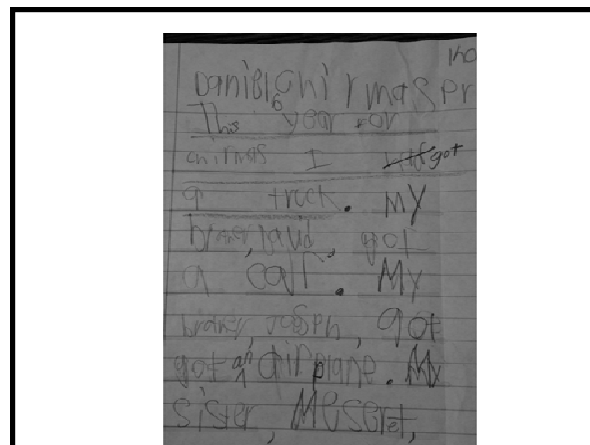 Daniel Chirmas Pr
This year for
chirmas I got
a truck. My
got
a car. My
Joseph, got
got an airplane. My
sister, Meseret,